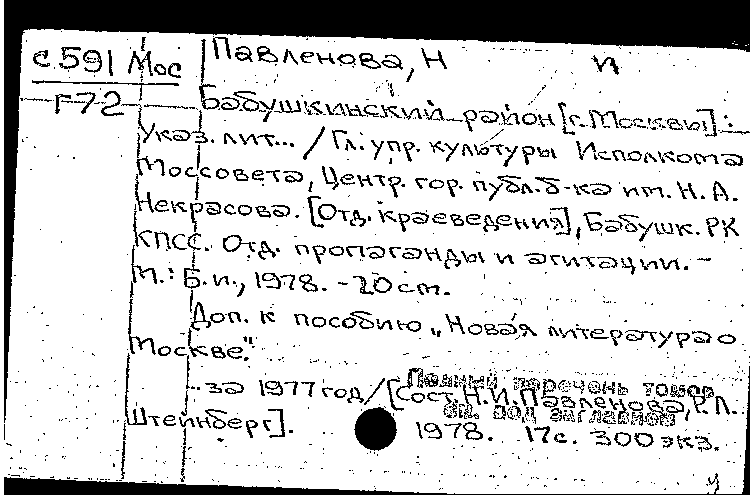 с.591 Мос Павленова, Н и
г72 Бабушкинский район [г. Москвы]:
Указ. лит... / Гл. упр. культуры Исполкома
Моссовета, Центр. гор. публ. б-ка им. Н. А.
Некрасова. [Отд. краеведения], Бабушк. РК
КПСС. Отд. пропаганды и агитации. –
М.: Б.и., 1978. – 20 см.
Доп. к пособию „Новая литература о
Москве".
..за 1977 год / [Сост. Н. И. Павленова, Р. Л.
Полный перечень томов
см. под заглавием
Штейнберг]. 1978. 17с. 300 экз.